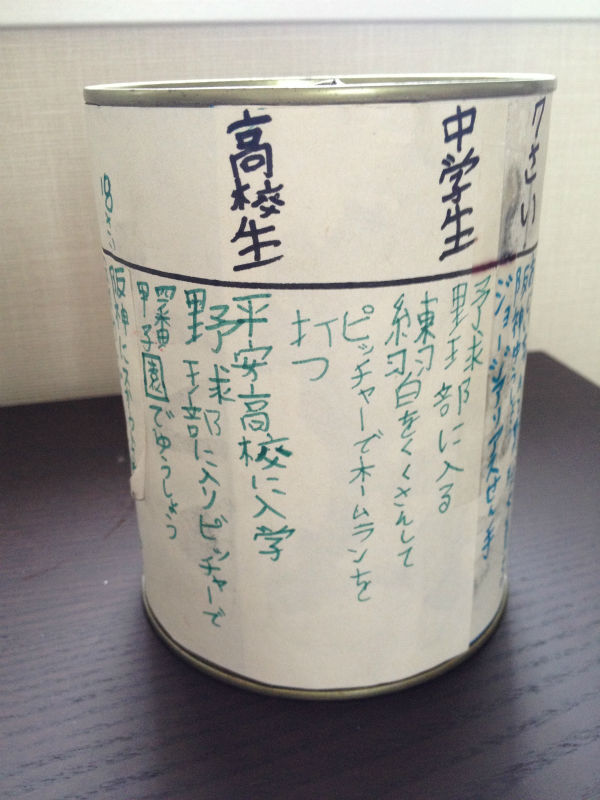 7さい
阪神ゆうしょう
ジョージアリアスせん手
中学生
野球部に入る
練習をたくさんして
ピッチャーでホームランを
打つ
高校生
平安高校に入学
野球部に入りピッチャーで
四番
甲子園でゆうしょう
18さ
阪神にスカウト